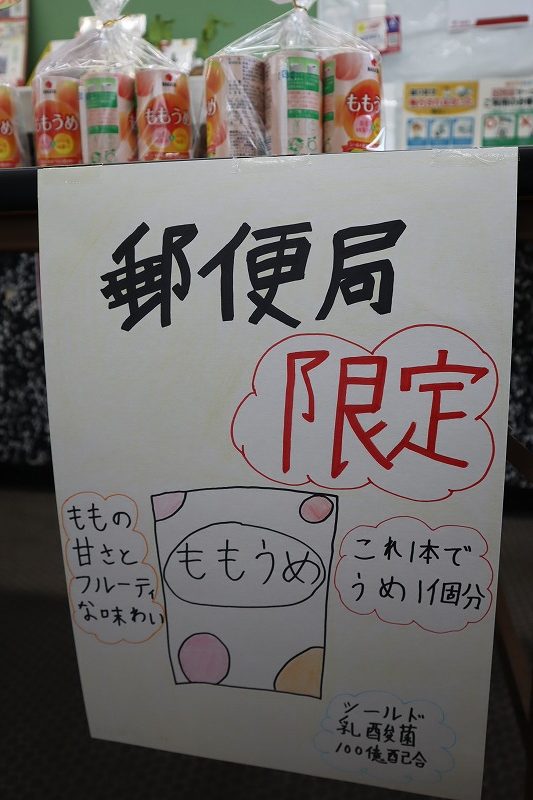 ももうめ
ももうめ
ももうめ
郵便局
限定
ももの
甘さと
フルーティ
な味わい
ももうめ
これ1本で
うめ1個分
シールド
乳酸菌
100億配合